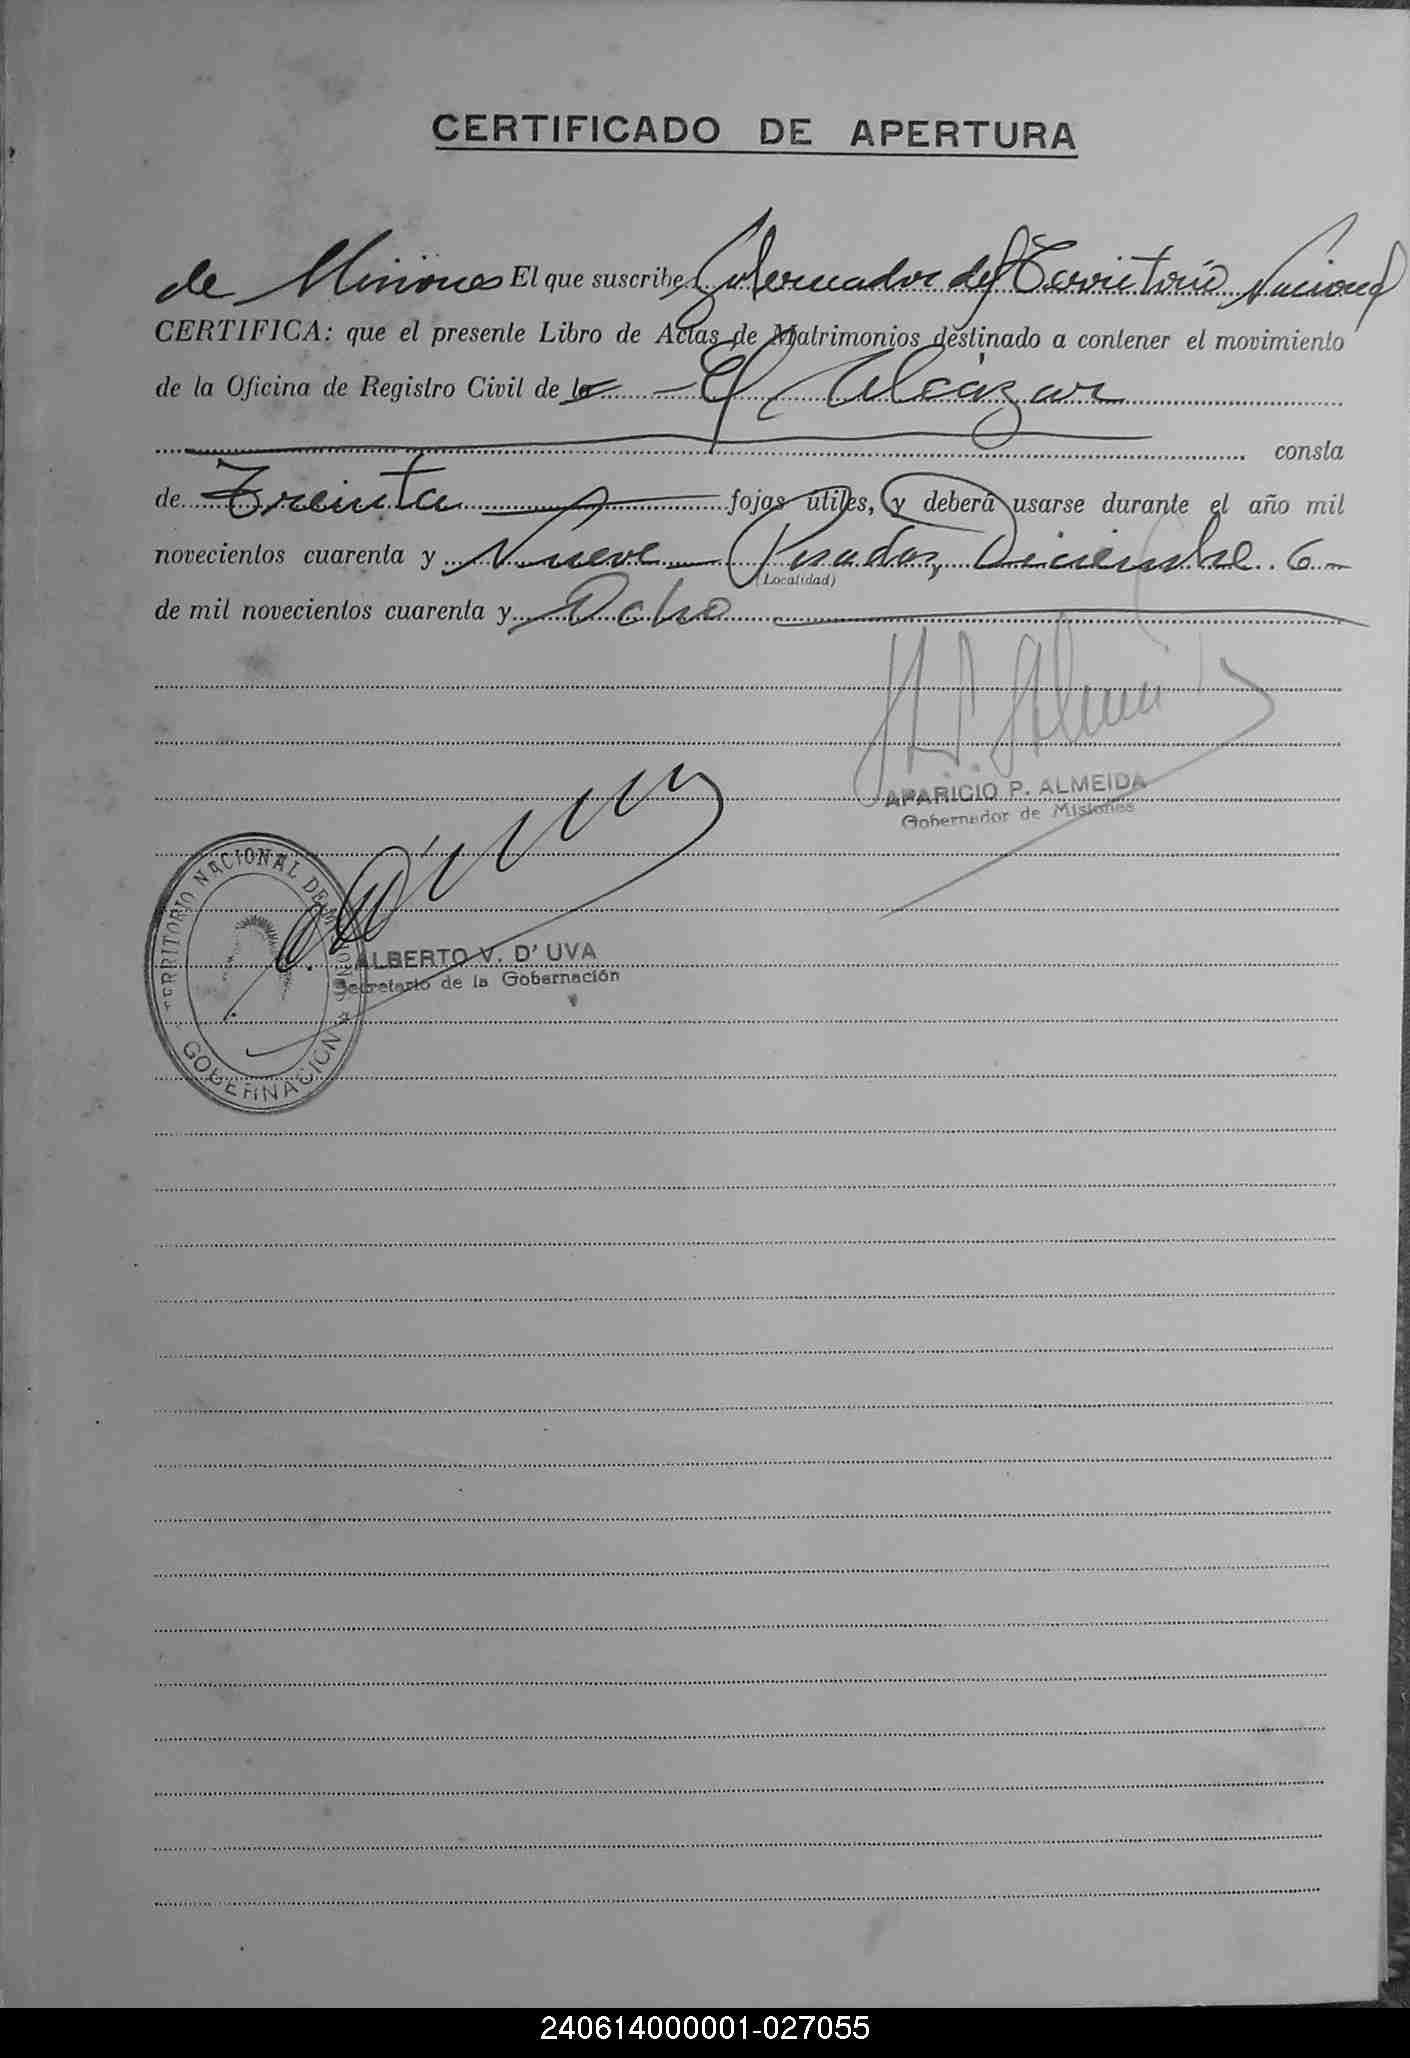 CERTIFICADO DE APERTURA
de Misiones El que suscribe, Gobernador del Territorio Nacional
CERTIFICA: que el presente Libro de Actas de Matrimonios destinado a contener el movimiento
de la Oficina de Registro Civil de la El Alcázar
consta
de Treinta fojas útiles, y deberá usarse durante el año mil
novecientos cuarenta y Nueve Posadas, Diciembre 6
(Localidad)
de mil novecientos cuarenta y Ocho
APARICIO P. ALMEIDA
Gobernador de Misiones
TERRITORIO NACIONAL DE MISIONES
GOBERNACION
ALBERTO V. D'UVA
Secretario de la Gobernación
240614000001-027055